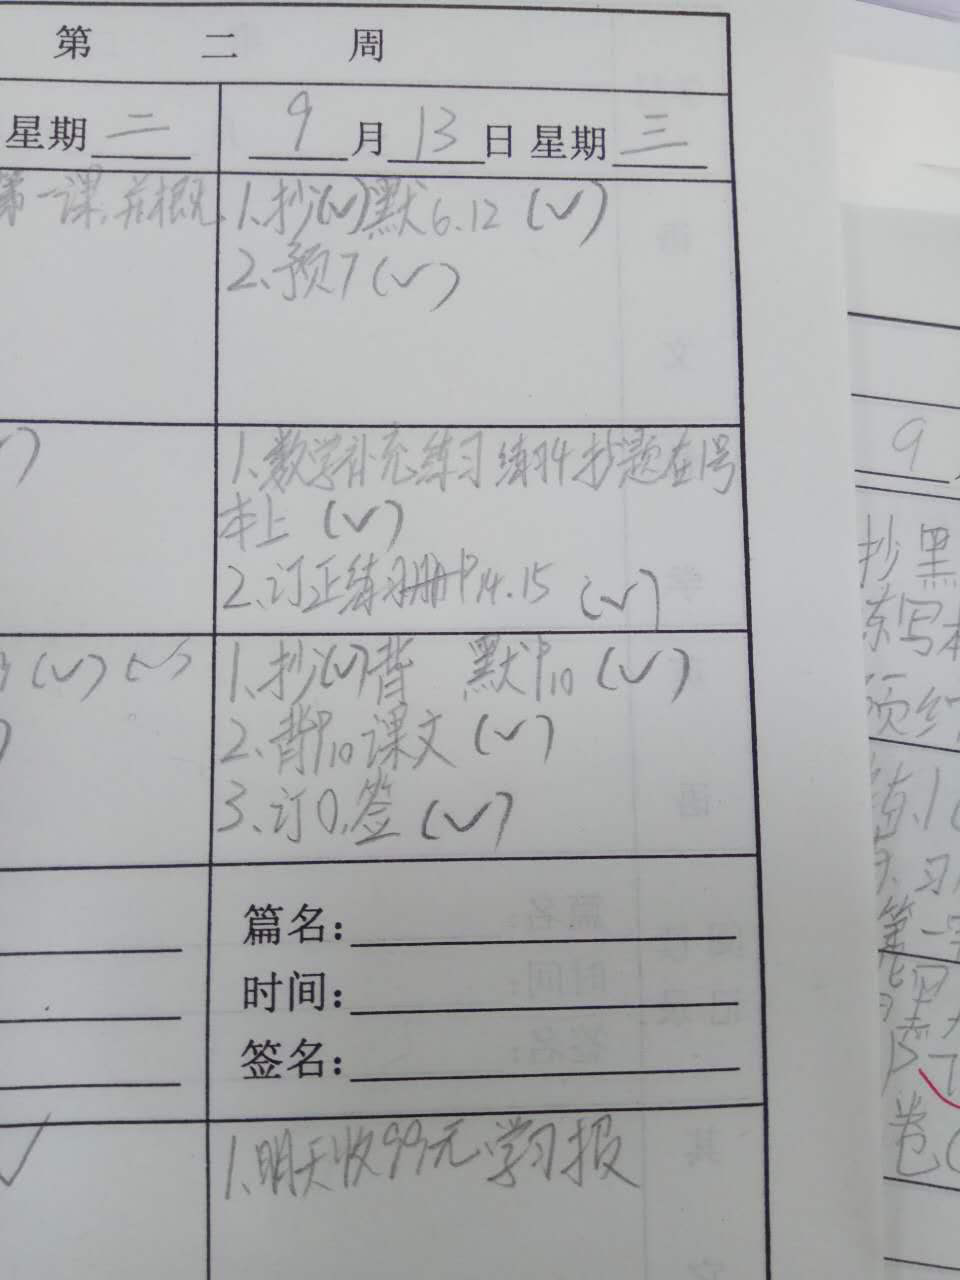 第 二 周
星期二
9月13日 星期三
第一课,并概
1.抄(√)默6.12 (√)
2.预7(√)
1.数学补充练习 练习4抄题在1号
本上 (√)
2.订正练习册P14.15 (√)
(√)
1.抄(√)背 默P10 (√)
2.背P10课文 (√)
3.订0.签 (√)
篇名:
时间:
签名:
1.明天收99元学习报
9
抄 黑
练写本
预
练1
习
第一
卷